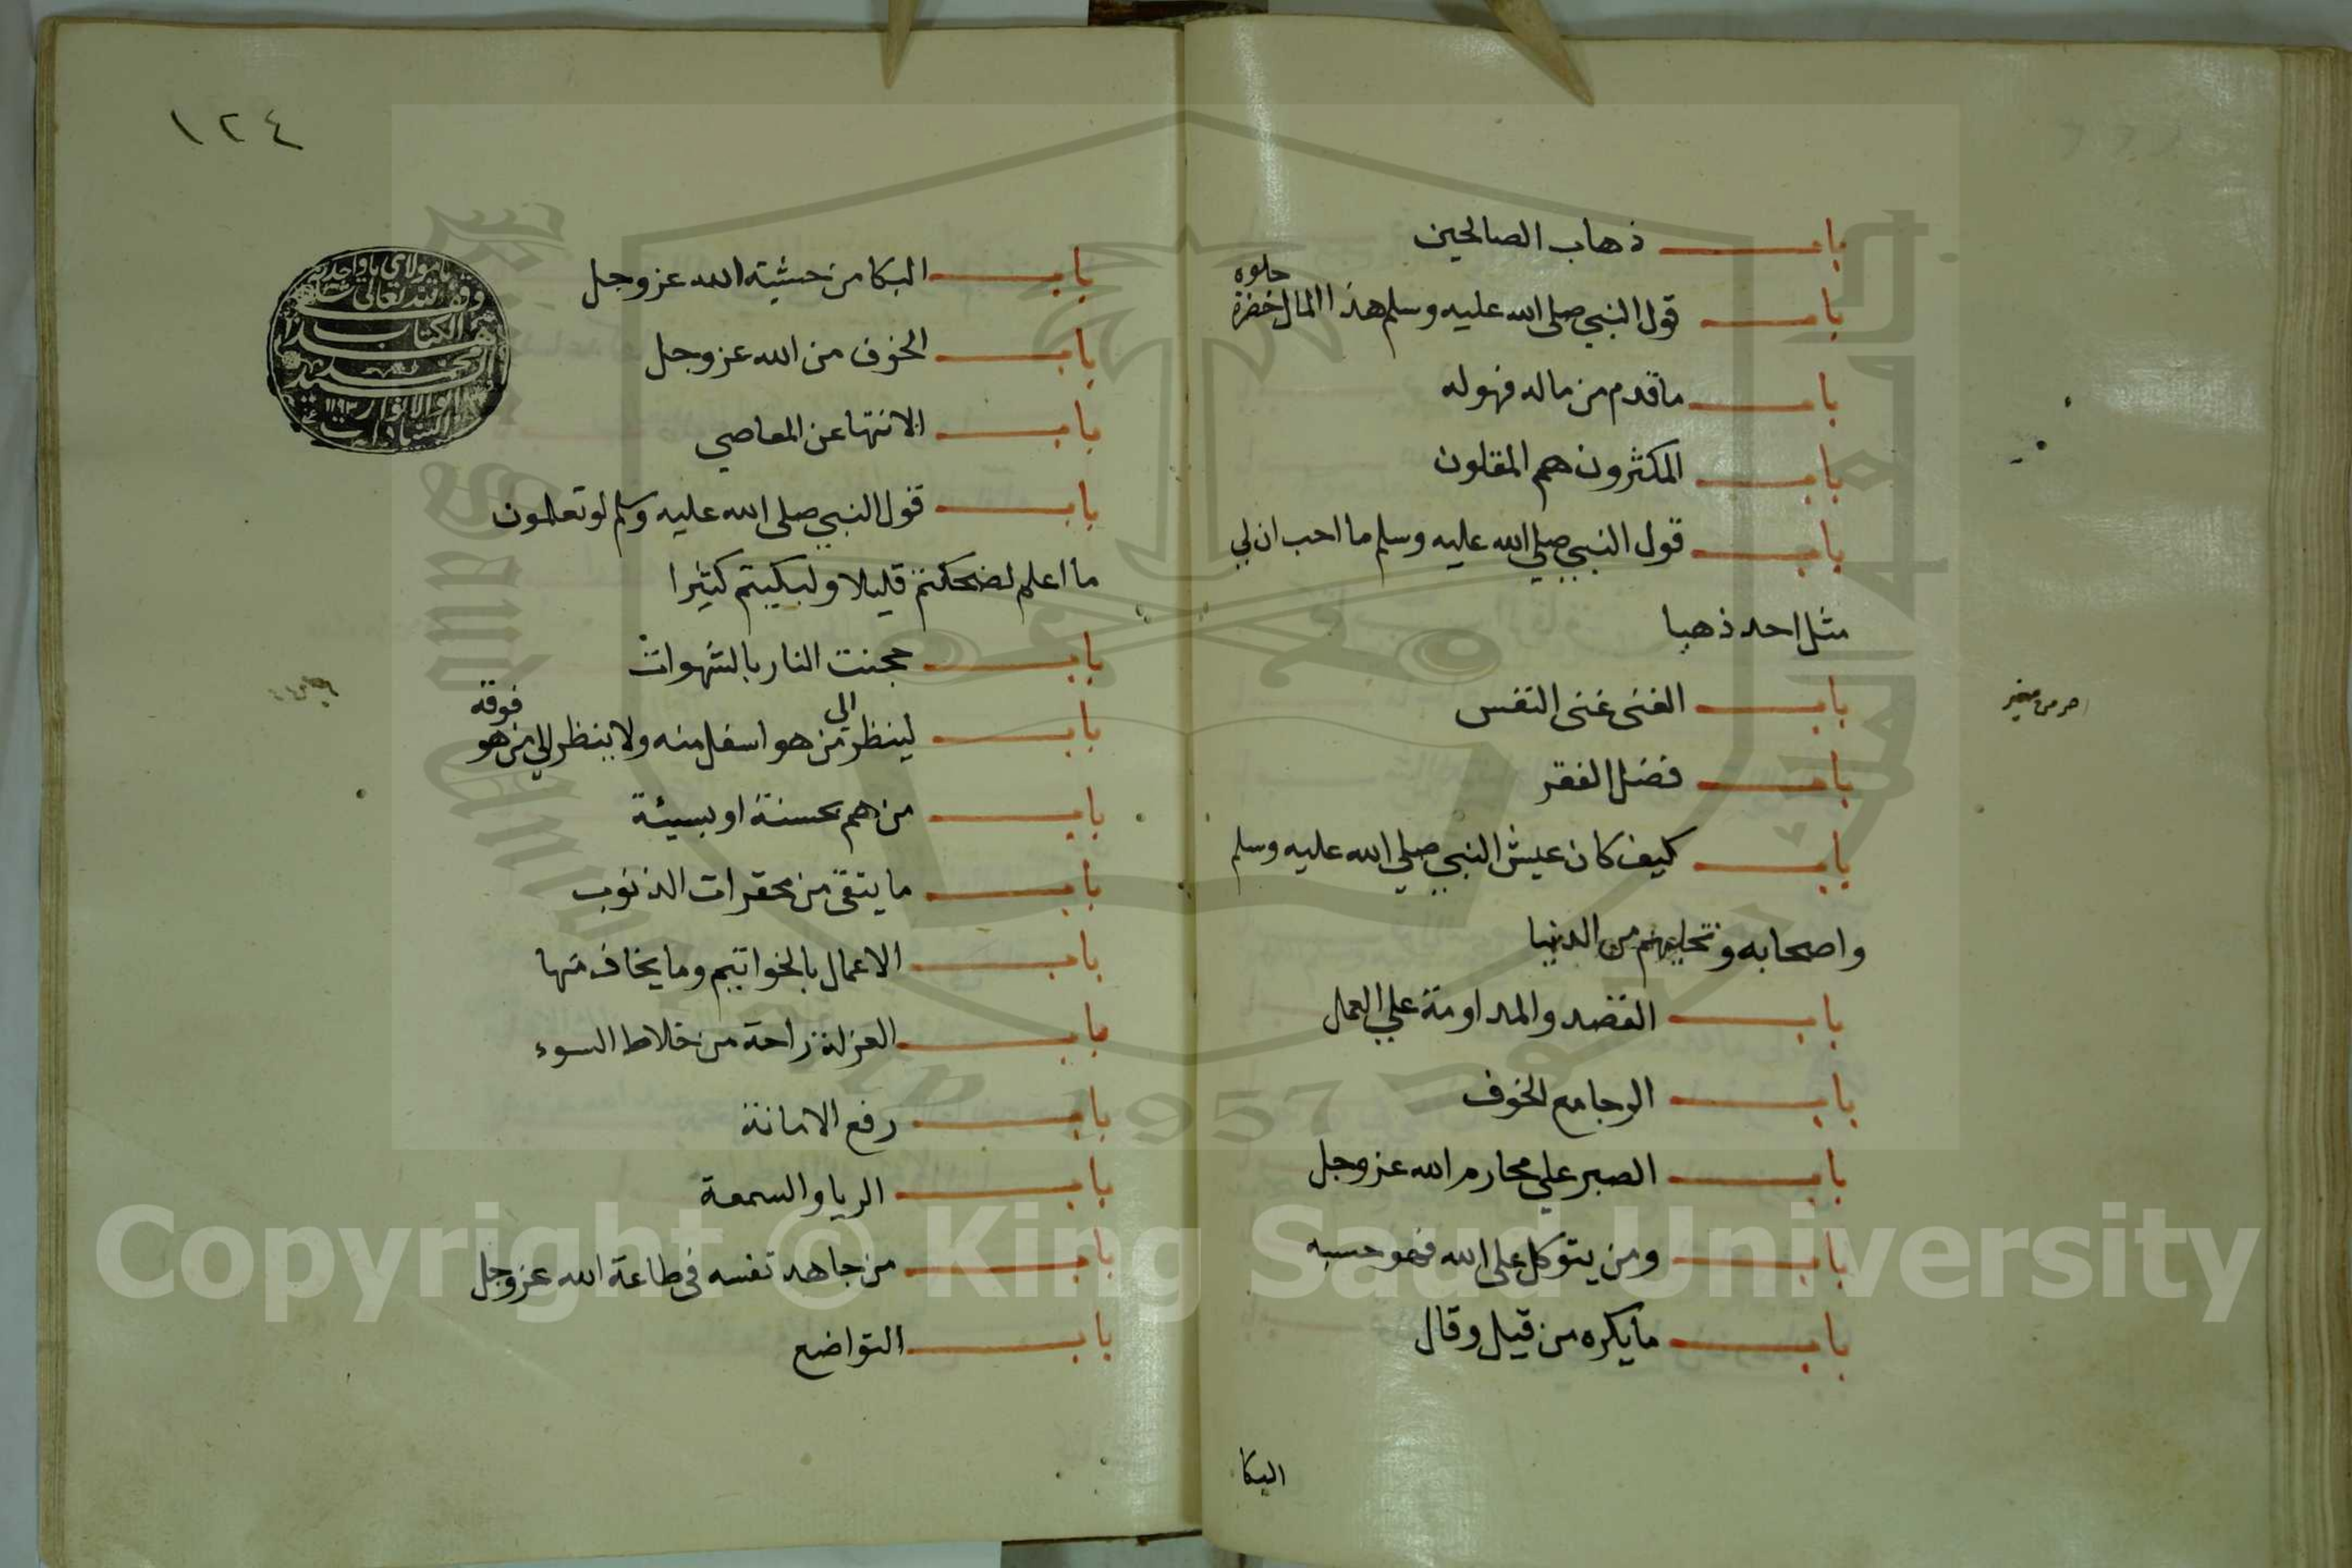 باب ذهاب الصالحين
باب قول النبي صلى الله عليه وسلم هذا المال خضرة حلوه
باب ما قدم من ماله فهو له
باب المكثرون هم المقلون
باب قول النبي صلي الله عليه وسلم ما احب ان لي
مثل احد ذهبا
باب الغنى غنى النفس
باب فضل الفقر
باب كيف كان عيش النبي صلي الله عليه وسلم
واصحابه وتخليهم من الدنيا
باب القصد والمداومة علي العمل
باب الرجا مع الخوف
باب الصبر علي محارم الله عز وجل
باب ومن يتوكل على الله فهو حسبه
باب ما يكره من قيل وقال
البكا
١٢٤
باب البكا من خشية الله عز وجل
باب الخوف من الله عز وجل
باب الانتها عن المعاصي
باب قول النبي صلى الله عليه وسلم لو تعلمون
ما اعلم لضحكتم قليلا ولبكيتم كثيرا
باب حجبت النار بالشهوات
باب لينظر الي من هو اسفل منه ولا ينظر الي من هو فوقه
باب من هم بحسنة او بسيئة
باب ما يتقى من محقرات الذنوب
باب الاعمال بالخواتيم وما يخاف منها
باب العزلة راحة من خلاط السوء
باب رفع الامانة
باب الريا والسمعة
باب من جاهد نفسه في طاعة الله عز وجل
باب التواضع
Copyright © King Saud University
1957